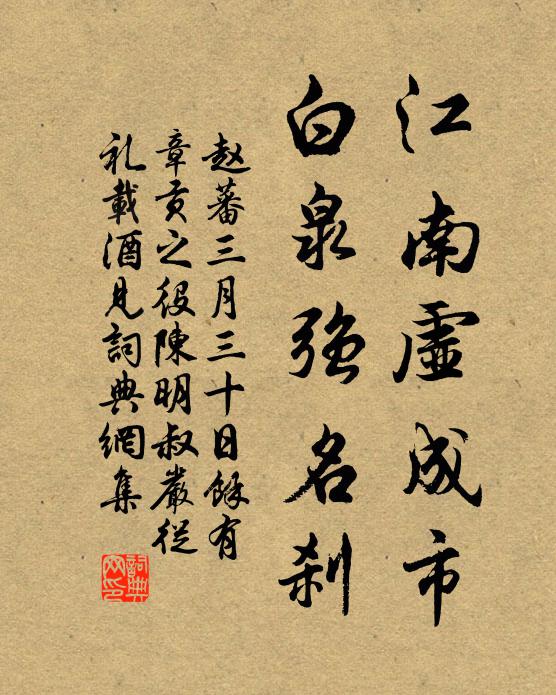 江南虛成市
白泉强名刹
赵蕃三月三十日餘有
章贡之役陳明叔嚴從
礼載酒見詞典網集
詞典網印